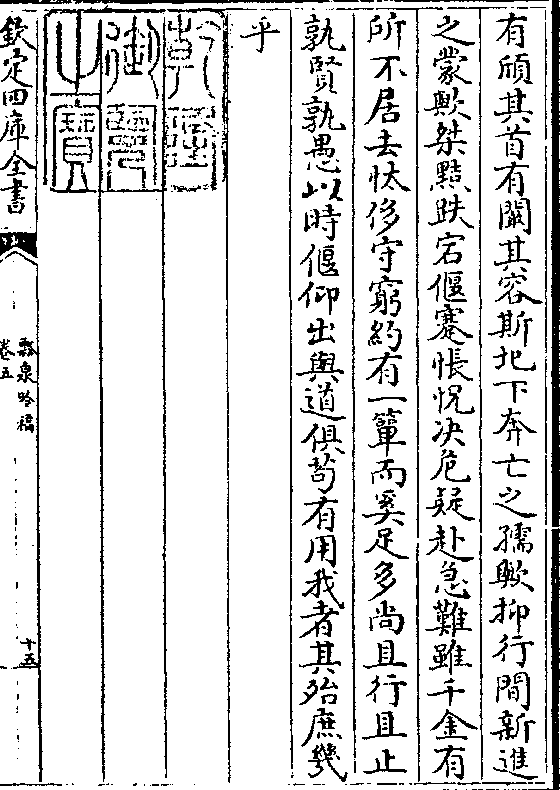 有頎其首有闌其容斯圯下奔亡之孺歟抑行間新進
之蒙歟桀黠跌宕偃蹇悵怳决危疑赴急難雖千金有
所不居去忲侈守窮約有一簞而奚足多尚且行且止
孰賢孰愚以時偃仰出與道俱茍有用我者其殆庶幾
乎
乾隆御覽之寶
欽定四庫全書
瓢泉吟稿
卷五
十五